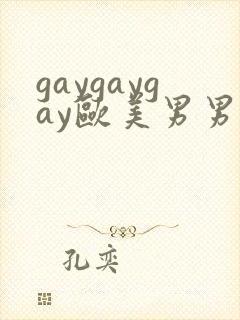 gaygayg
ay歐美男男
孔奕